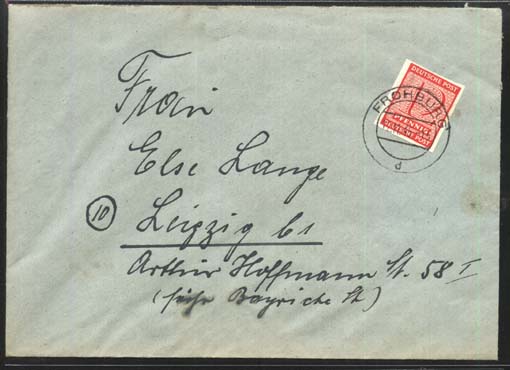 DEUTSCHE POST
12
PFENNIG
DEUTSCHE POST
FROHBURG
d
Frau
Else Lange
(10) Leipzig C1
Arthur Hoffmann St. 58 I
(früher Bayriche St)